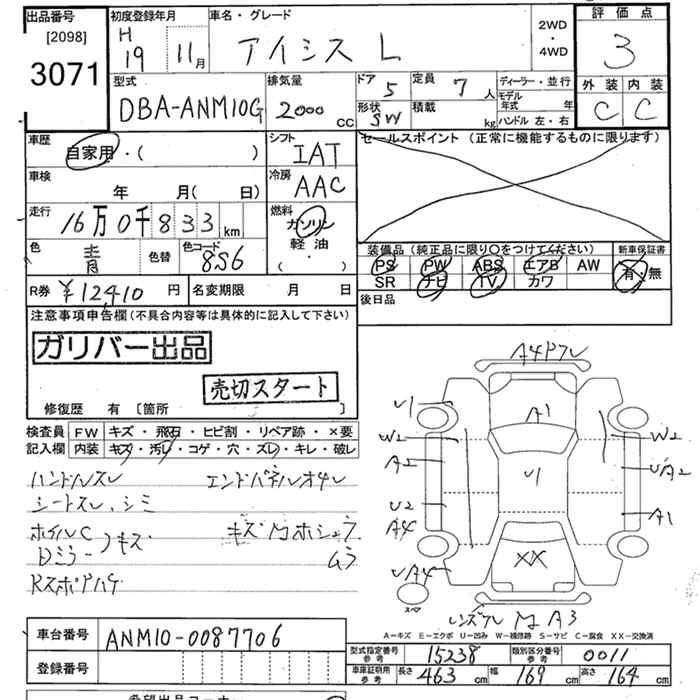 出品番号
[2098]
3071
初度登録年月
H 19 11月
車名・グレード
アイシス L
2WD
・
4WD
評価点
3
外装 内装
C C
型式
DBA-ANM10G
排気量
2000 CC
ドア 5
形状 SW
定員 7人
積載 kg
ディーラー・並行
モデル年式 年
ハンドル 左・右
車歴
自家用・( )
シフト
IAT
セールスポイント (正常に機能するものに限ります)
車検
年 月( 日)
冷房
AAC
走行
16万0千833km
燃料
ガソリン
軽油
・
( )
色 青
色替
色コード
8S6
装備品(純正品に限り○をつけてください)
PS PW ABS エアB AW
SR ナビ TV カワ
新車保証書
有・無
R券 ¥12,410円
名変期限 月 日
後日品
注意事項申告欄(不具合内容等は具体的に記入して下さい)
ガリバー出品
売切スタート
修復歴 有 〔箇所 〕
検査員 FW キズ・飛石・ヒビ割・リペア跡・×要
記入欄 内装 キズ・汚レ・コゲ・穴・スレ・キレ・破レ
ハンドルスレ エンドパネルオサレ
シートスレ、シミ
ホイルC
Dミラー キズ
キズ M ホシュウ
ムラ
Rスポアハゲ
A4 Pフレ
U1
A1
W2
W2
A2
U1
UA2
U2
A4
A1
XX
UA4
スペア
レンズワレ M A3
A-キズ E-エクボ U-凹み W-補修跡 S-サビ C-腐食 XX-交換済
車台番号 ANM10-0087706
登録番号
型式指定番号 参考 15238
類別区分番号 参考 0011
車庫証明用 参考 長さ 463 cm 幅 169 cm 高さ 164 cm